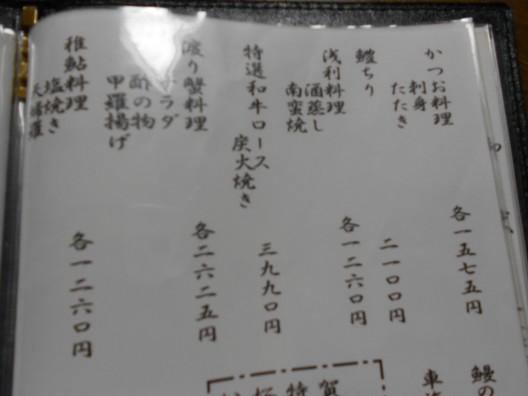 かつお料理
刺身
たたき
各一五七五円
鱧ちり
二一〇〇円
浅利料理
酒蒸し
南蛮焼
各一二六〇円
特選和牛ロース
炭火焼き
三九九〇円
渡り蟹料理
サラダ
酢の物
甲羅揚げ
各二六二五円
稚鮎料理
塩焼き
天婦羅
各一二六〇円
鰻の
車
特